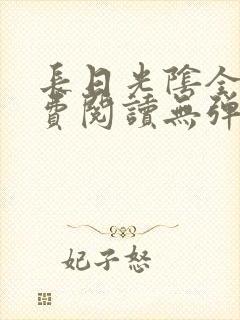 長日光陰全
費閱讀無彈
妃子怒